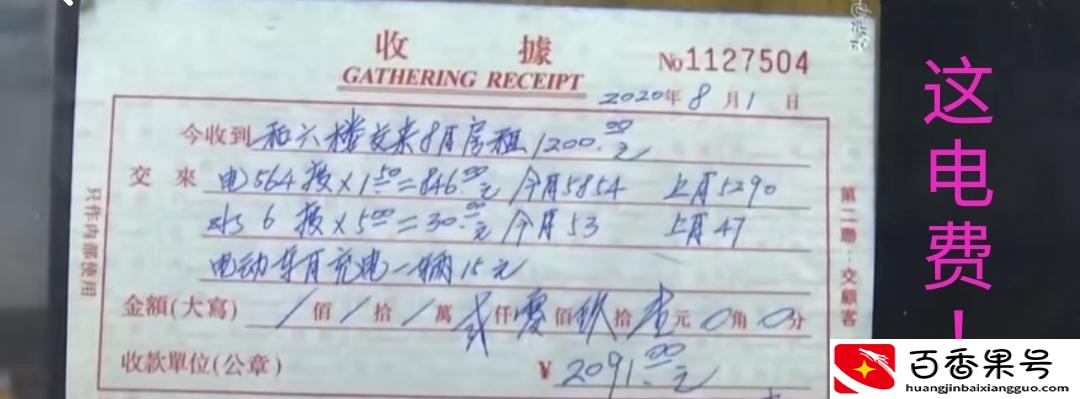 收 據
GATHERING RECEIPT
No1127504
2020年8月1日
今收到 和六楼交来8月房租1200.00元
交來 电564换×1.50=846.00元 今月5854 上月5290
水 6 换×5.00=30.00元 今月53 上月47
电动车月充电一辆15元
金額(大寫) / 佰 / 拾 / 萬 贰 仟 零 佰 玖 拾 壹 元 0 角 0 分
收款單位(公章)
¥ 2091.00元
只作内部使用
第二聯:交顧客
这电费!
百香果号
huangjinbaixiangguo.com